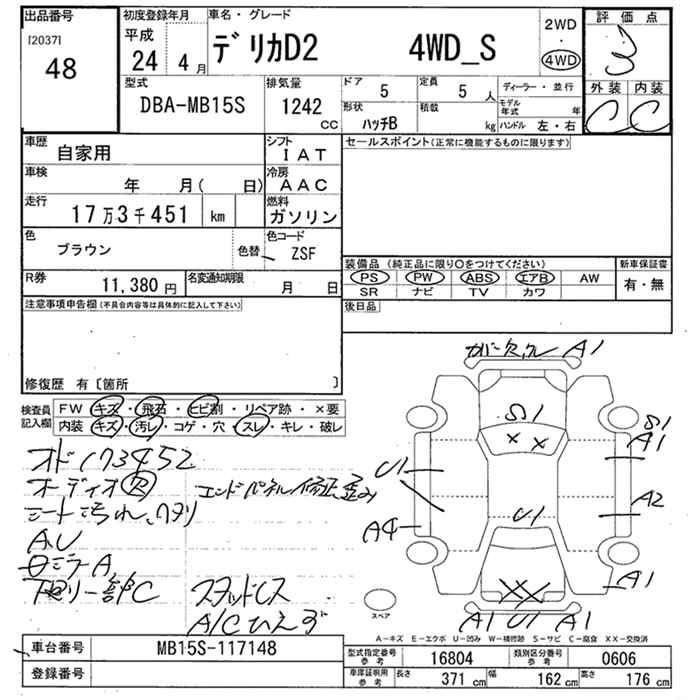 出品番号
[2037]
48
初度登録年月
平成
24 4月
車名・グレード
デリカD2 4WD_S
2WD
・
4WD
評価点
3
外装 内装
C C
型式
DBA-MB15S
排気量
1242
CC
ドア 5
定員 5 人
形状 ハッチB
積載 kg
ディーラー・並行
モデル年式 年
ハンドル 左・右
車歴
自家用
シフト
IAT
車検
年 月( 日)
冷房
AAC
走行
17万3千451 km
燃料
ガソリン
色
ブラウン
色替
色コード
ZSF
R券 11,380 円
名変通知期限 月 日
セールスポイント(正常に機能するものに限ります)
装備品(純正品に限り○をつけてください)
PS PW ABS エアB AW
SR ナビ TV カワ
新車保証書
有・無
後日品
注意事項申告欄(不具合内容等は具体的に記入して下さい)
修復歴 有〔箇所 〕
検査員
記入欄
FW キズ・飛石・ヒビ割・リペア跡・×要
内装 キズ・汚レ・コゲ・穴・スレ・キレ・破レ
オド173452
オーディオ欠
エンドパネル修正歪み
シート汚れ、ヘタリ
A.U
ロミラーA,
下廻り一部C
スタッドレス
A/Cひえず
カバー欠,ワレ A1
S1
S1
A1
U1
A2
A4
U1
A1
A1 U1 A1
スペア
A-キズ E-エクボ U-凹み W-補修跡 S-サビ C-腐食 XX-交換済
車台番号 MB15S-117148
登録番号
型式指定番号
参考
16804
類別区分番号
参考
0606
車庫証明用
参考
長さ 371 cm 幅 162 cm 高さ 176 cm